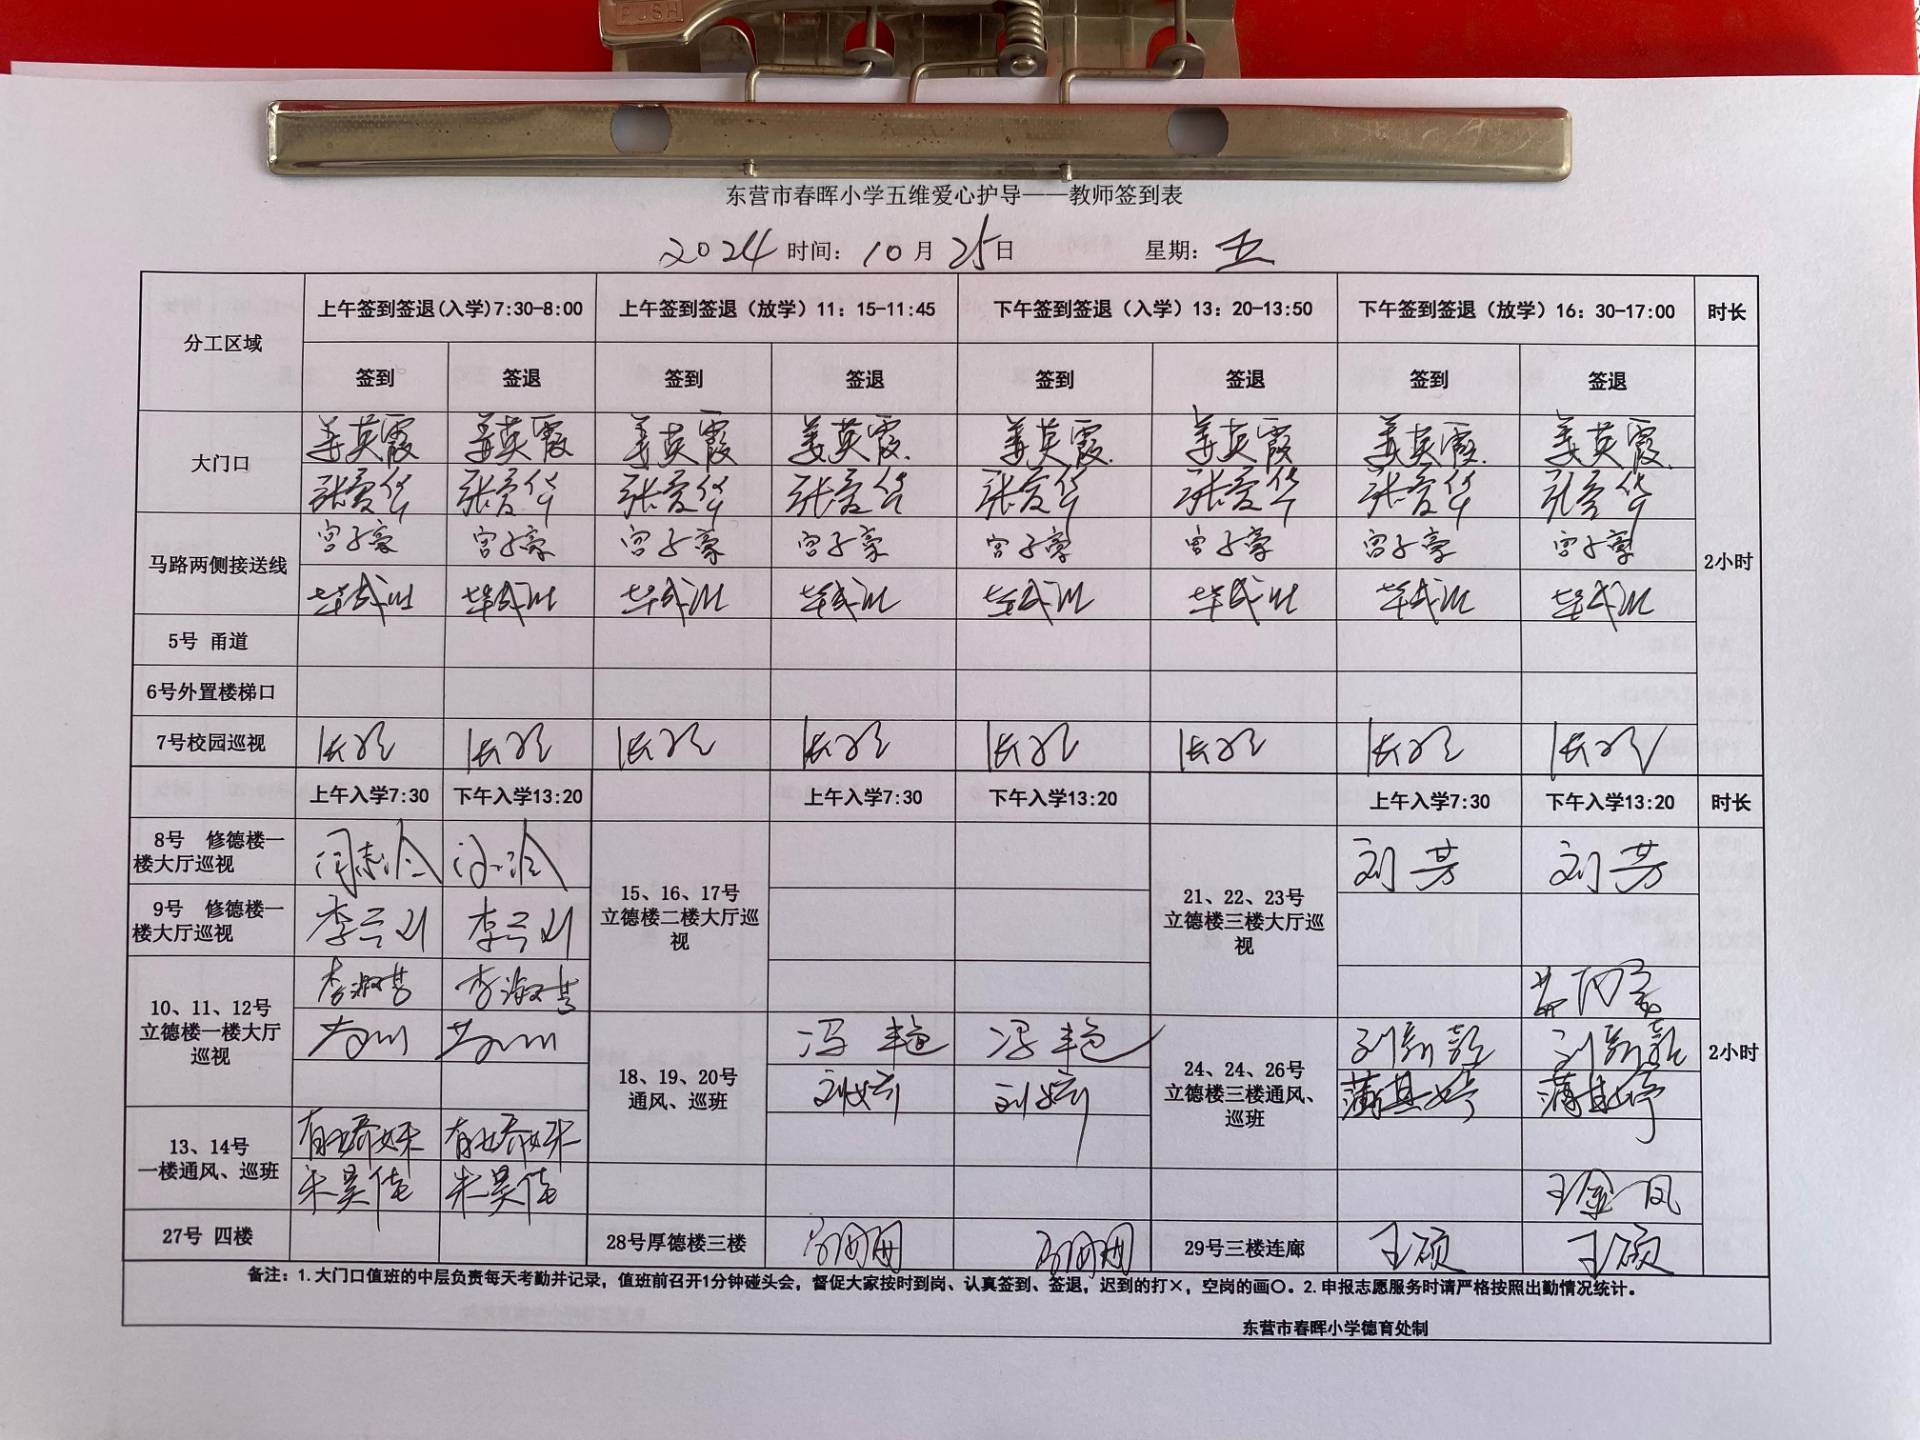 PUSH
东营市春晖小学五维爱心护导——教师签到表
2024 时间：10月25日 星期：五
分工区域 上午签到签退(入学)7:30-8:00 上午签到签退（放学）11：15-11:45 下午签到签退（入学）13：20-13:50 下午签到签退（放学）16：30-17:00 时长
签到 签退 签到 签退 签到 签退 签到 签退
大门口 姜英霞 姜英霞 姜英霞 姜英霞 姜英霞 姜英霞 姜英霞 姜英霞
张爱华 张爱华 张爱华 张爱华 张爱华 张爱华 张爱华 张爱华
马路两侧接送线 宫子豪 宫子豪 宫子豪 宫子豪 宫子豪 宫子豪 宫子豪 宫子豪
2小时
5号 甬道
6号外置楼梯口
7号校园巡视
上午入学7:30 下午入学13:20 上午入学7:30 下午入学13:20 上午入学7:30 下午入学13:20 时长
8号 修德楼一
楼大厅巡视
刘芳 刘芳
9号 修德楼一
楼大厅巡视
15、16、17号
立德楼二楼大厅巡
视
21、22、23号
立德楼三楼大厅巡
视
10、11、12号
立德楼一楼大厅
巡视
李淑芸 李淑芸
18、19、20号
通风、巡班
冯艳 冯艳
24、24、26号
立德楼三楼通风、
巡班
刘新颖 刘新颖
蒲其婷 蒲其婷
2小时
13、14号
一楼通风、巡班
朱昊倩 朱昊倩
王金凤
27号 四楼 28号厚德楼三楼 29号三楼连廊 王硕 王硕
备注：1.大门口值班的中层负责每天考勤并记录，值班前召开1分钟碰头会，督促大家按时到岗、认真签到、签退，迟到的打×，空岗的画○。2.申报志愿服务时请严格按照出勤情况统计。
东营市春晖小学德育处制